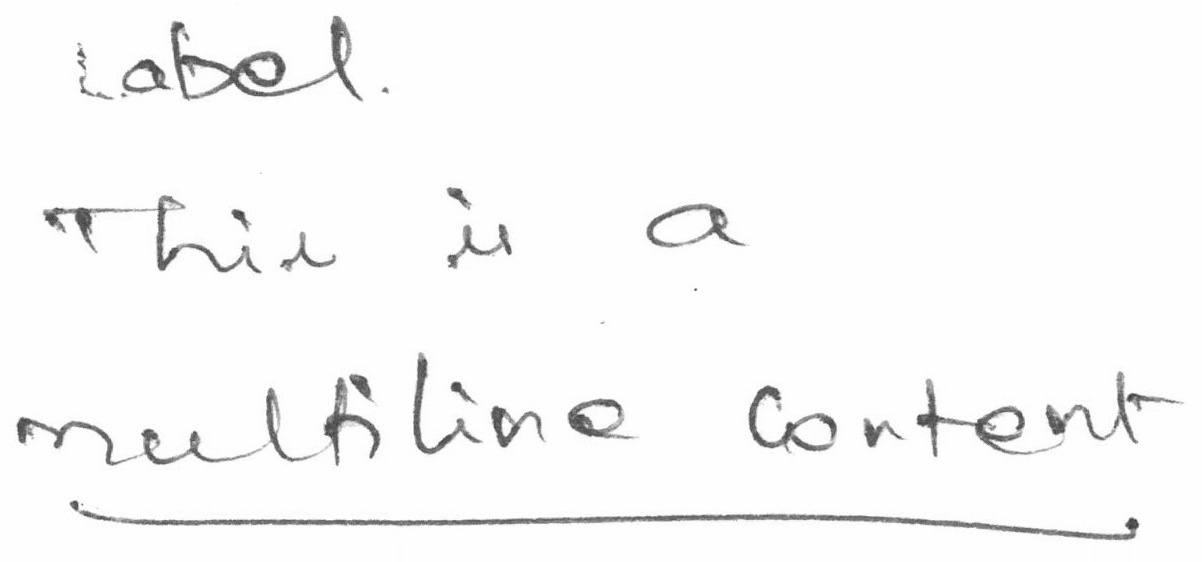 Label.
This is a
multiline content